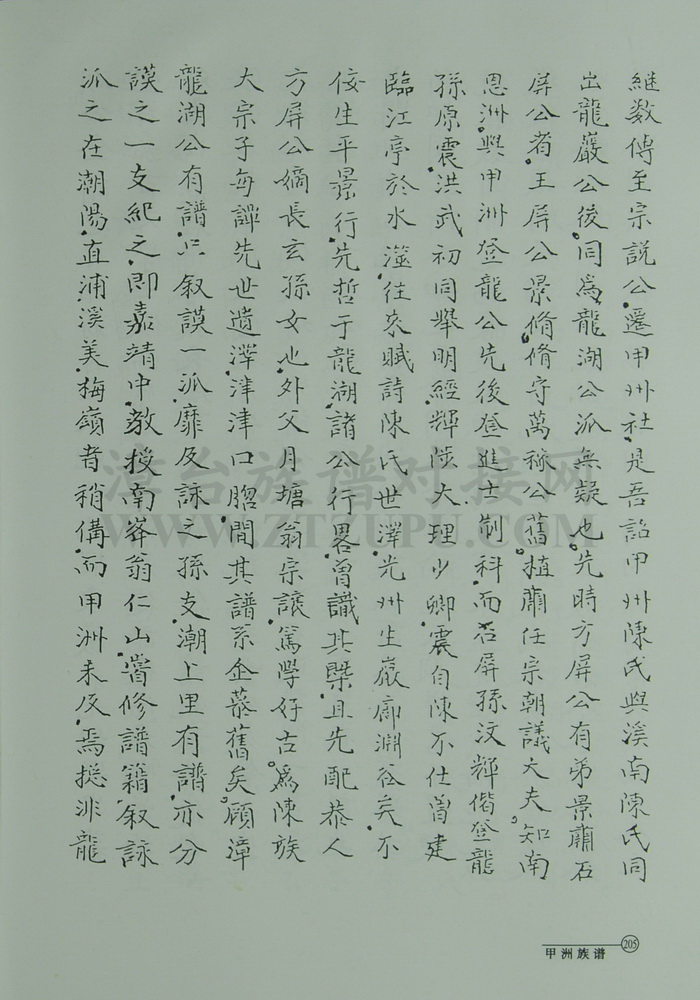 继数傳至宗説公.遷甲州社.是吾詔甲州陳氏與溪南陳氏同
出龍巖公後.同爲龍湖公派無疑也.先時方屏公有弟景肅石
屏公者.王屏公景脩.脩守萬稼公舊植肅任宗朝議大夫.知南
恩洲.與甲洲登龍公先後登進士制科.而石屏孫汶輝偕登龍
孫原震.洪武初同舉明經.輝陟大理少卿.震自陳不仕曾建
臨江亭於水滋.往來賦詩陳氏世澤.光州生嚴廊淵谷矣.不
佞生平景行.先哲于龍湖.諸公行畧.曾識其槩.且先配恭人
方屏公嫡長玄孫女也.外父月塘翁宗讓.篤學好古.爲陳族
大宗子每譚先世遺澤.津津口𦛨間其譜系企慕舊矣.顧漳
龍湖公有譜.只叙謨一派靡及詠之孫支.潮上里有譜.亦分
謨之一支紀之.即嘉靖中.教授南峯翁仁山.嘗修譜籍.叙詠
派之在潮陽.直浦.溪美.梅嶺者稍備.而甲洲未及.焉搃非龍
津台族谱对接网
WWW.ZTZUPU.COM
甲洲族谱 205